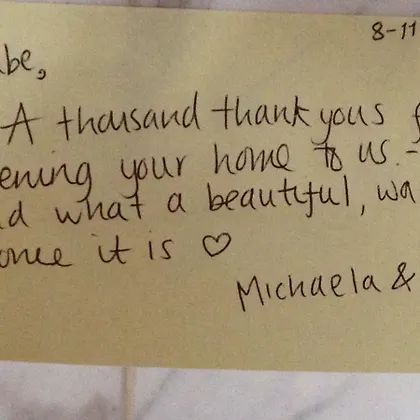 8-11
be,
A thousand thank yous f
ening your home to us. -
d what a beautiful, wa
ome it is ♡
Michaela &